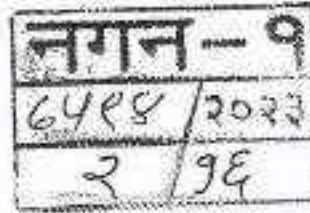 नगन-१
६५९४/२०२३
२/१६